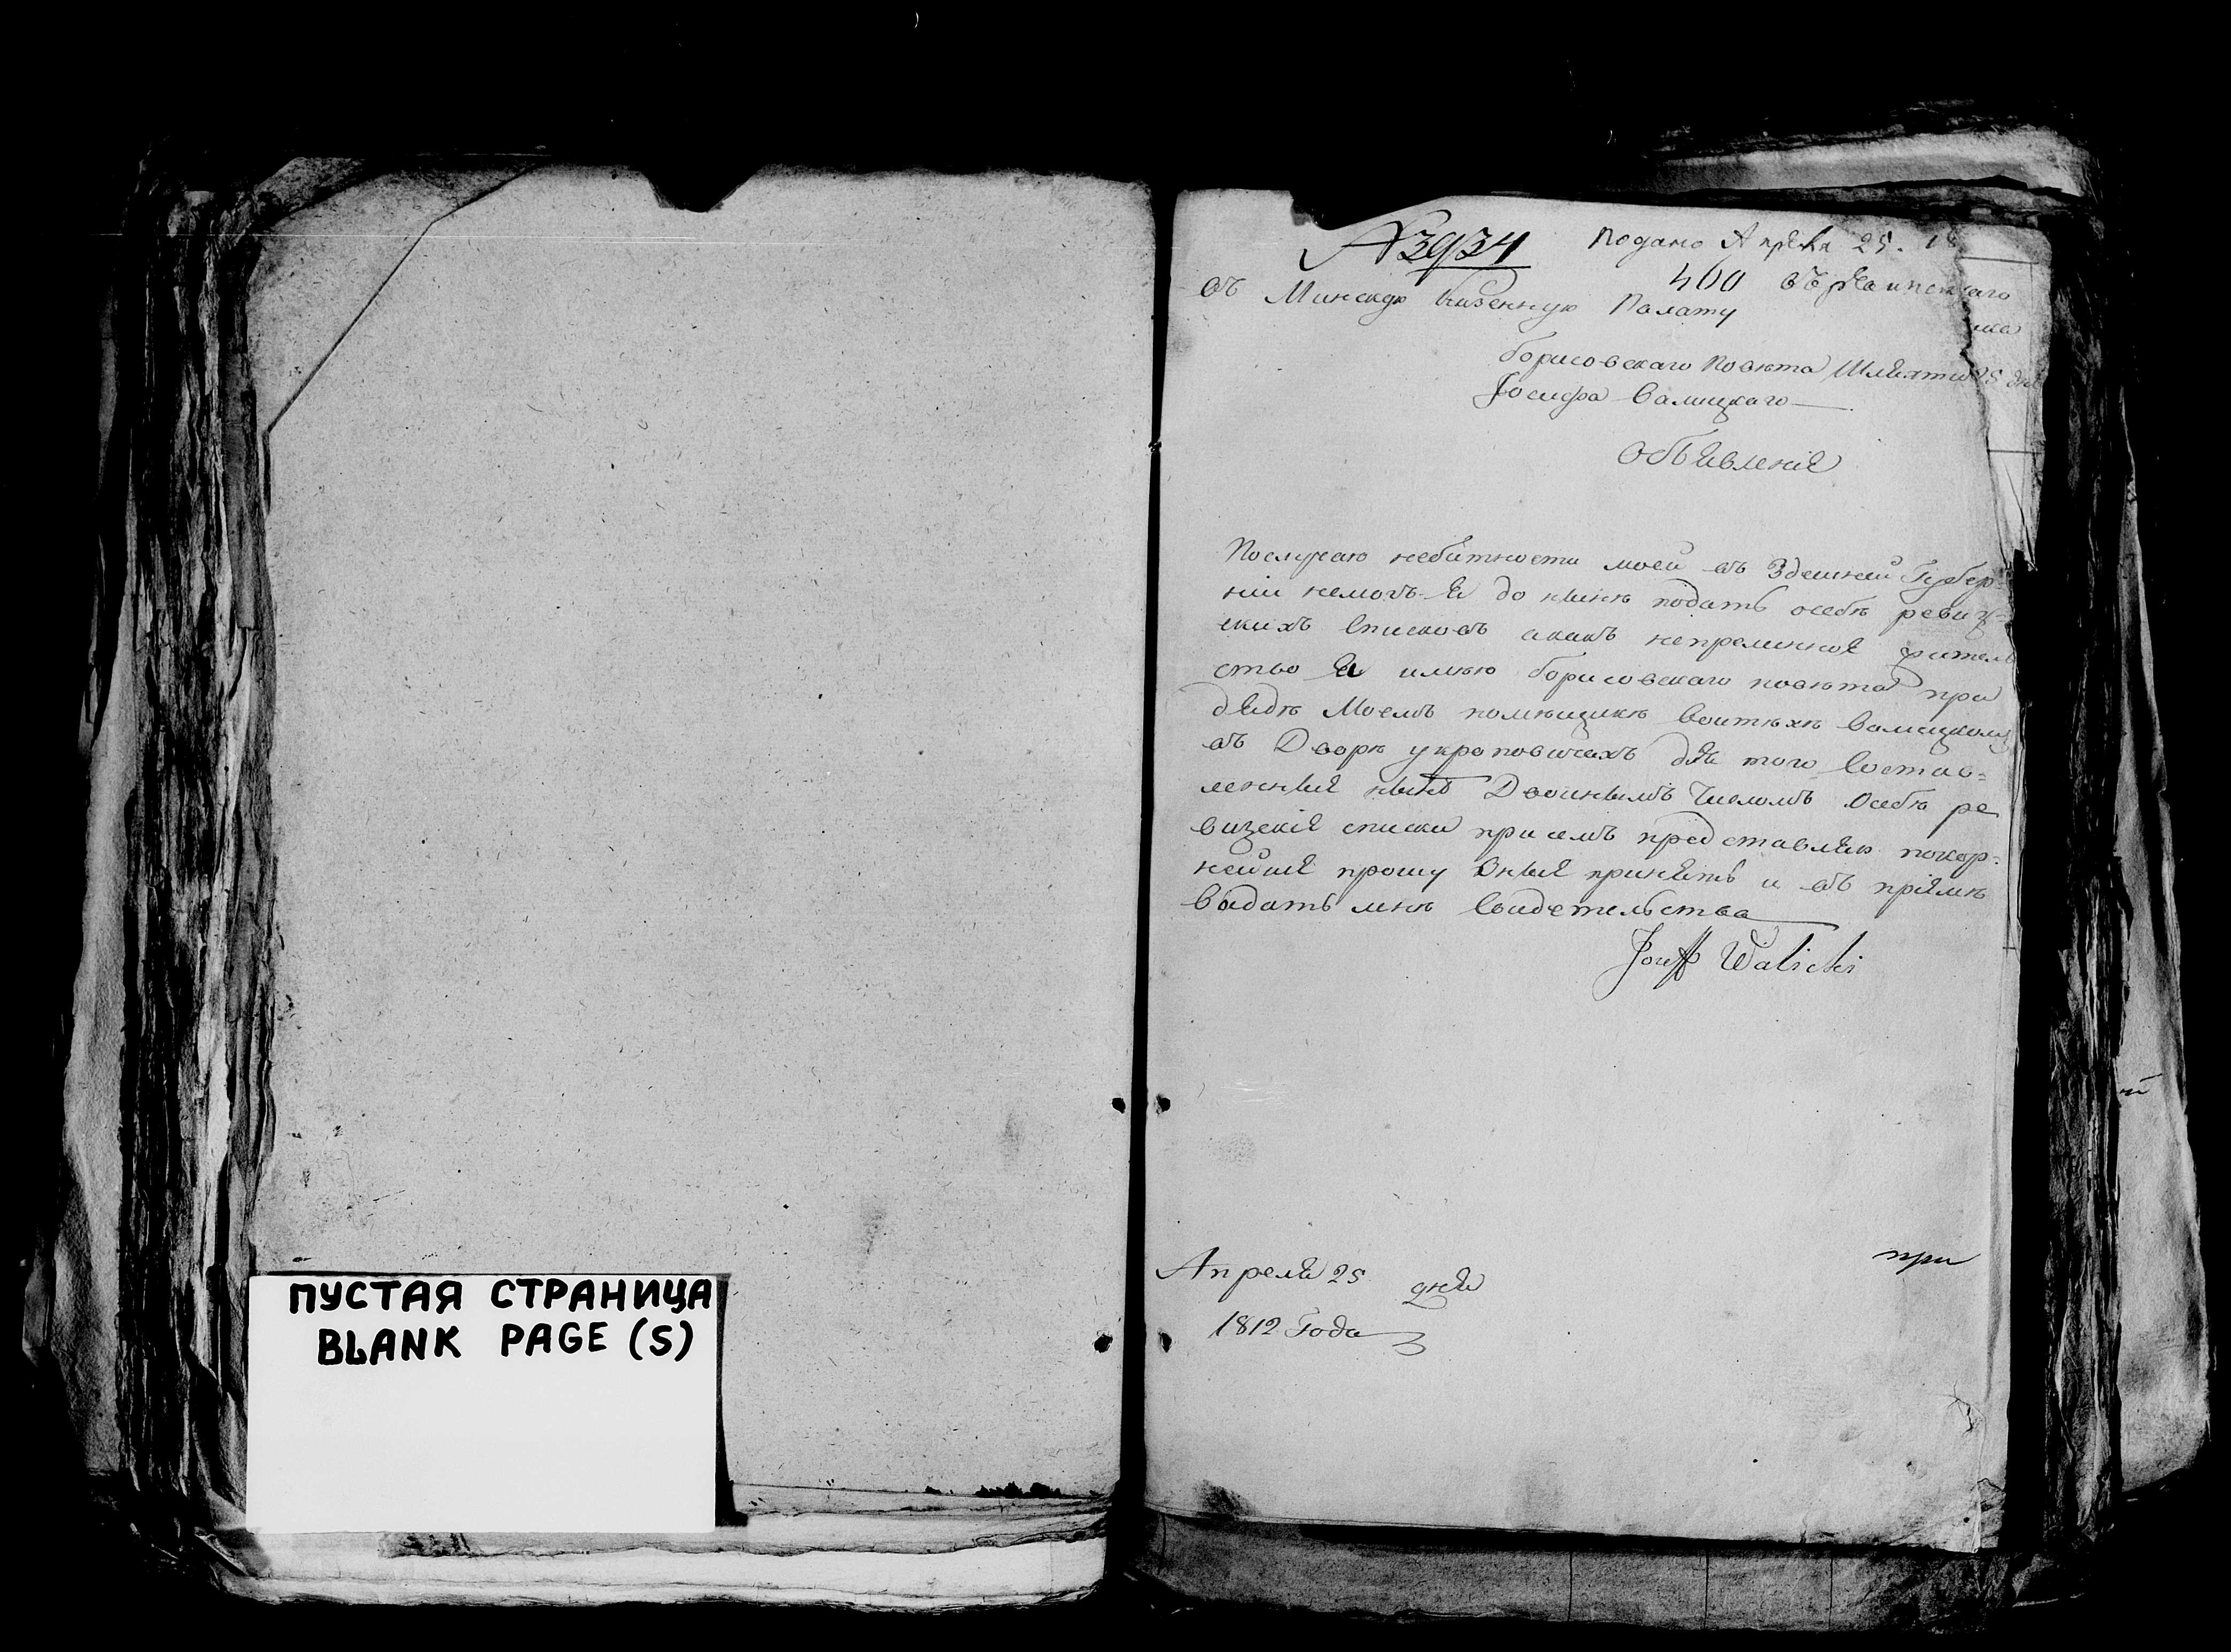 ПУСТАЯ СТРАНИЦА
BLANK PAGE (S)
№ 3934 Подано Апрѣля 25. 18
400
въ Минскую Казенную Палату
Борисовскаго Повѣта Шляхтича
Іосифа Валицкаго
Объявленіе
Послучаю небытности моей въ Здешней Губер=
ніи немогъ я до нынѣ подать осебѣ ревиз=
скихъ Списковъ акакъ непременное житель
ство я имѣю Борисовскаго повѣта при
дядѣ Моемъ помѣщикѣ Войтѣхѣ Валицкому
въ Дворѣ для того Состав=
ленныя нынѣ Двойнымъ Числомъ Осебѣ ре
визскіе списки присемъ представляя покор=
нейше прошу Оныя принять и въ пріемѣ
выдать мнѣ Свидетельства
Józeff Walicki
при
Апреля 25 дня
1812 Года